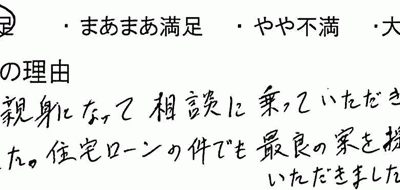 足 ・まあまあ満足 ・やや不満 ・大
の理由
親身になって相談に乗っていただき
した。住宅ローンの件でも最良の案を探
いただきました